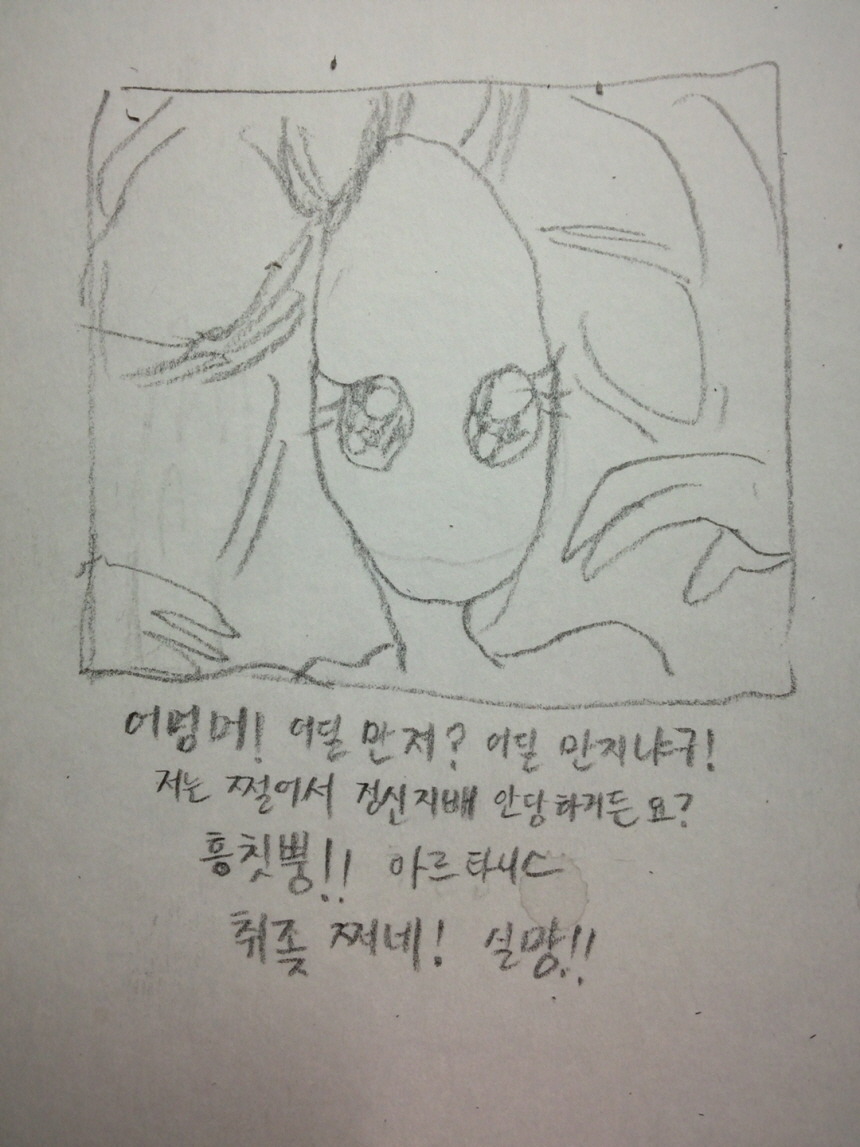 어멈머! 어딜 만져? 어딜 만지냐구!
저는 쩔어서 정신지배 안당하거든요?
흥칫뿡!! 아르타니스
취좆 쩌네! 실망!!